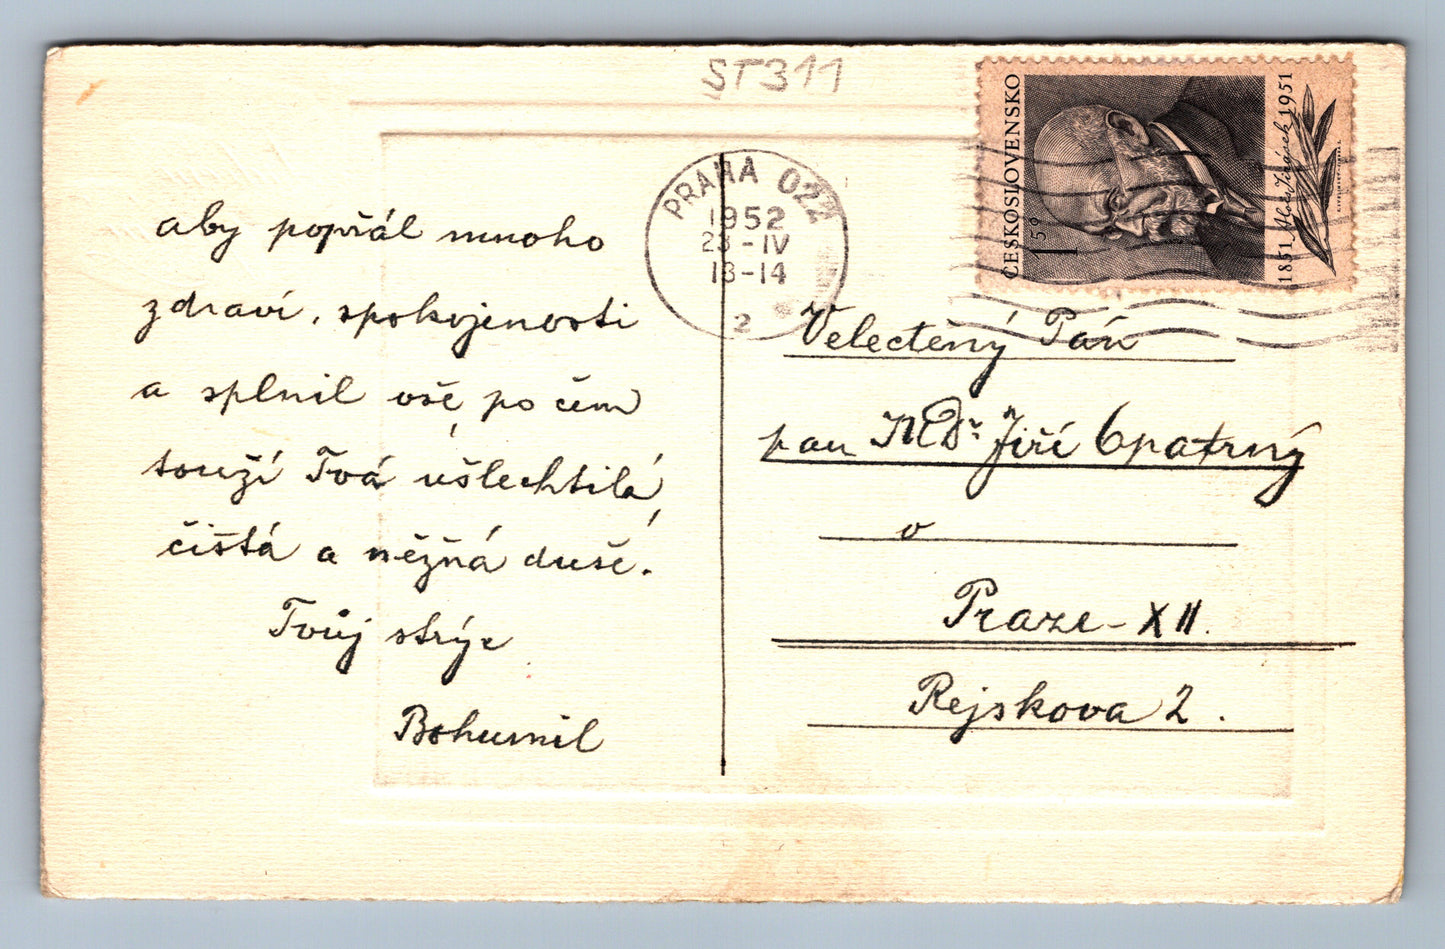 ST311
ČESKOSLOVENSKO
1 50
1851 Alois Jirásek 1951
PRAHA 022
1952
23-IV
13-14
2
aby popřál mnoho
zdraví, spokojenosti
a splnil vše, po čem
touží Tvá ušlechtilá,
čistá a něžná duše.
Tvůj strýc
Bohumil
Velectěný Pán
pan MDr. Jiří Opatrný
v
Praze-XII.
Rejskova 2.